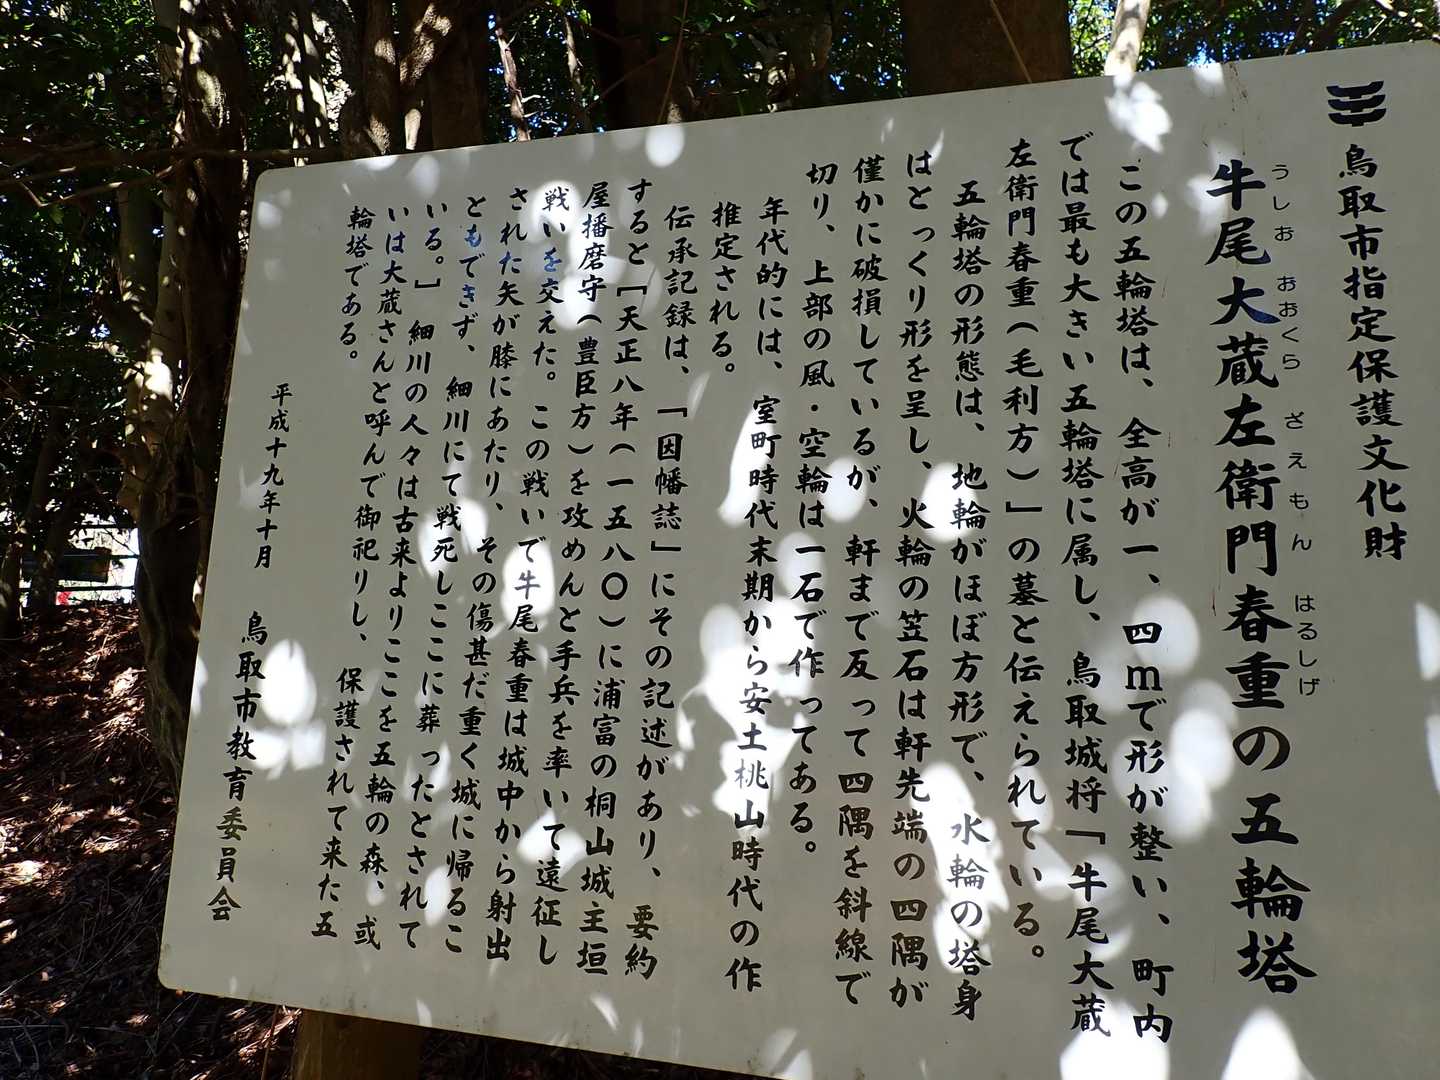 鳥取市指定保護文化財
うしお おおくら ざえもん はるしげ
牛尾大蔵左衛門春重の五輪塔
この五輪塔は、全高が一、四mで形が整い、町内
では最も大きい五輪塔に属し、鳥取城将「牛尾大蔵
左衛門春重(毛利方)」の墓と伝えられている。
五輪塔の形態は、地輪がほぼ方形で、水輪の塔身
はとっくり形を呈し、火輪の笠石は軒先端の四隅が
僅かに破損しているが、軒まで反って四隅を斜線で
切り、上部の風・空輪は一石で作ってある。
年代的には、室町時代末期から安土桃山時代の作
と推定される。
伝承記録は、「因幡誌」にその記述があり、要約
すると[天正八年(一五八〇)に浦富の桐山城主垣
屋播磨守(豊臣方)を攻めんと手兵を率いて遠征し
戦いを交えた。この戦いで牛尾春重は城中から射出
された矢が膝にあたり、その傷甚だ重く城に帰るこ
ともできず、細川にて戦死しここに葬ったとされて
いる。]細川の人々は古来よりここを五輪の森、或
いは大蔵さんと呼んで御祀りし、保護されて来た五
輪塔である。
平成十九年十月
鳥取市教育委員会